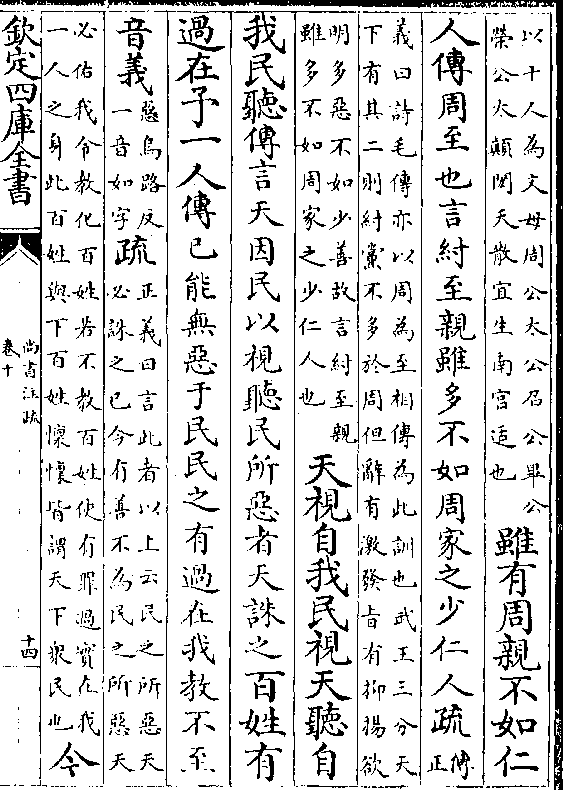 以十人為文母周公太公召公畢公
榮公太顛閎夭散宜生南宮适也
雖有周親不如仁
人傳周至也言紂至親雖多不如周家之少仁人疏
正
傳
義曰詩毛傳亦以周為至相傳為此訓也武王三分天
下有其二則紂黨不多於周但辭有激發旨有抑揚欲
明多惡不如少善故言紂至親
雖多不如周家之少仁人也
天視自我民視天聽自
我民聽傳言天因民以視聽民所惡者天誅之百姓有
過在予一人傳已能無惡于民民之有過在我教不至
音義
惡烏路反
一音如字
疏
正義曰言此者以上云民之所惡天
必誅之已今有善不為民之所惡天
必佑我令教化百姓若不教百姓使有罪過實在我
一人之身此百姓與下百姓懍懍皆謂天下衆民也
今
欽定四庫全書
尚書注疏
卷十
十四